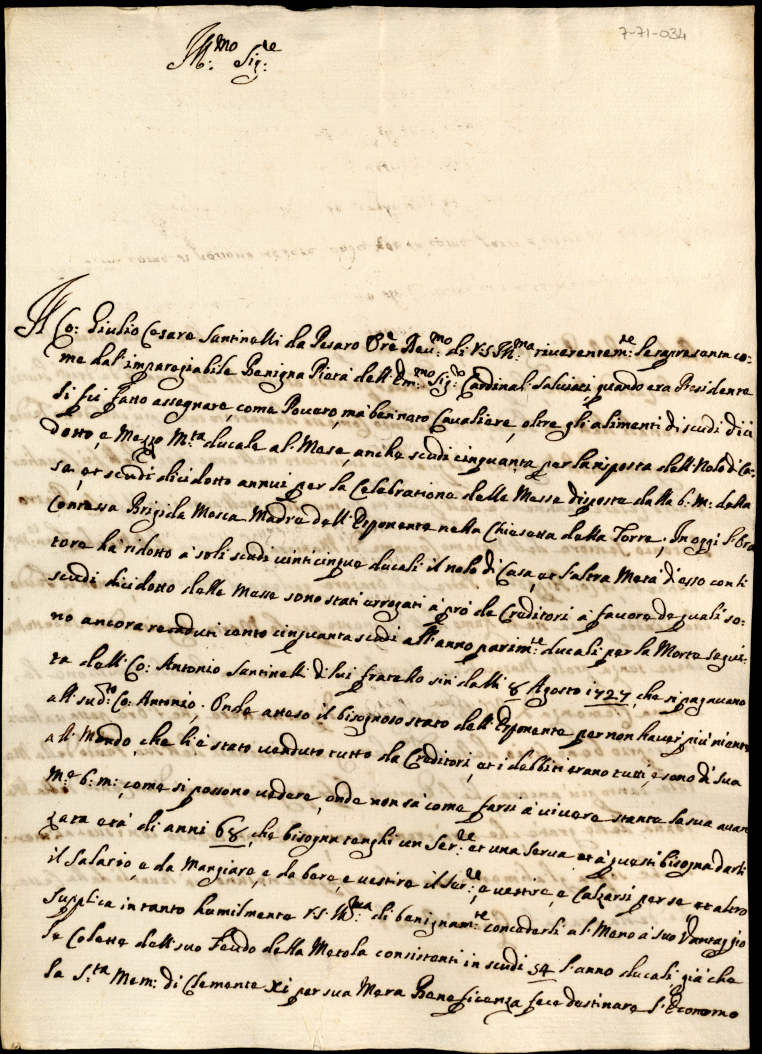 7-71-034
Ill:mo Sig:re
Il Co: Giulio Cesare Santinelli da Pesaro Ore Deu:mo di V.S. Ill:ma riverentem:te le rapresenta co-
me dal'impareggiabile Benigna Pietà dell'Em:mo Sig:r Cardinal Salviati, quando era Presidente
li fù fatto assegnare, come Povero, mà ben nato Cavaliere, oltre gli alimenti di scudi dici
dotto, e Mezzo M:ta ducale al Mese, anche scudi cinquanta per la risposta dell Nolo di Ca-
sa, et scudi dicidotto annui per la Celebratione delle Messe disposte dalla b: m: della
Contessa Brigida Mosca Madre dell'Esponente nella Chiesetta della Torre; In oggi l'Ora
tore hà ridotto à soli scudi vinticinque ducali il nolo di Casa, et l'altra Metà d'esso con li
scudi dicidotto delle Messe sono stati arrogati à prò de Creditori à favore de quali so-
no ancora reeduti cento cinquanta scudi all'anno parim:te ducali per la Morte segui-
ta dell Co: Antonio Santinelli di lui fratello sin dalli 8 Agosto 1727, che si pagavano
all sud:to Co: Antonio; Onde atteso il bisognoso stato dell'Esponente per non haver più niente
all Mondo, che li è stato venduto tutto da Creditori, et i debbiti erano tutti, e sono di sua
M:e b: m:, come si possono vedere, onde non sà come farsi à vivere stante la sua avan
zata età di anni 68, che bisogna tenghi un Ser:re et una Serva et à questi bisogna darli
il Salario, e da Mangiare, e da bere, e vestire il Ser:re, e vestire, e Calzarsi per se et altro
Supplica intanto humilmente V.S. Ill:ma di benignam:te concederli al Meno à suo Vantaggio
le Colette dell suo Feudo della Metola consistenti in scudi 54 l'anno ducali, già che
la S:ta Mem: di Clemente XI per sua Mera Beneficenza fece destinare l'Economo